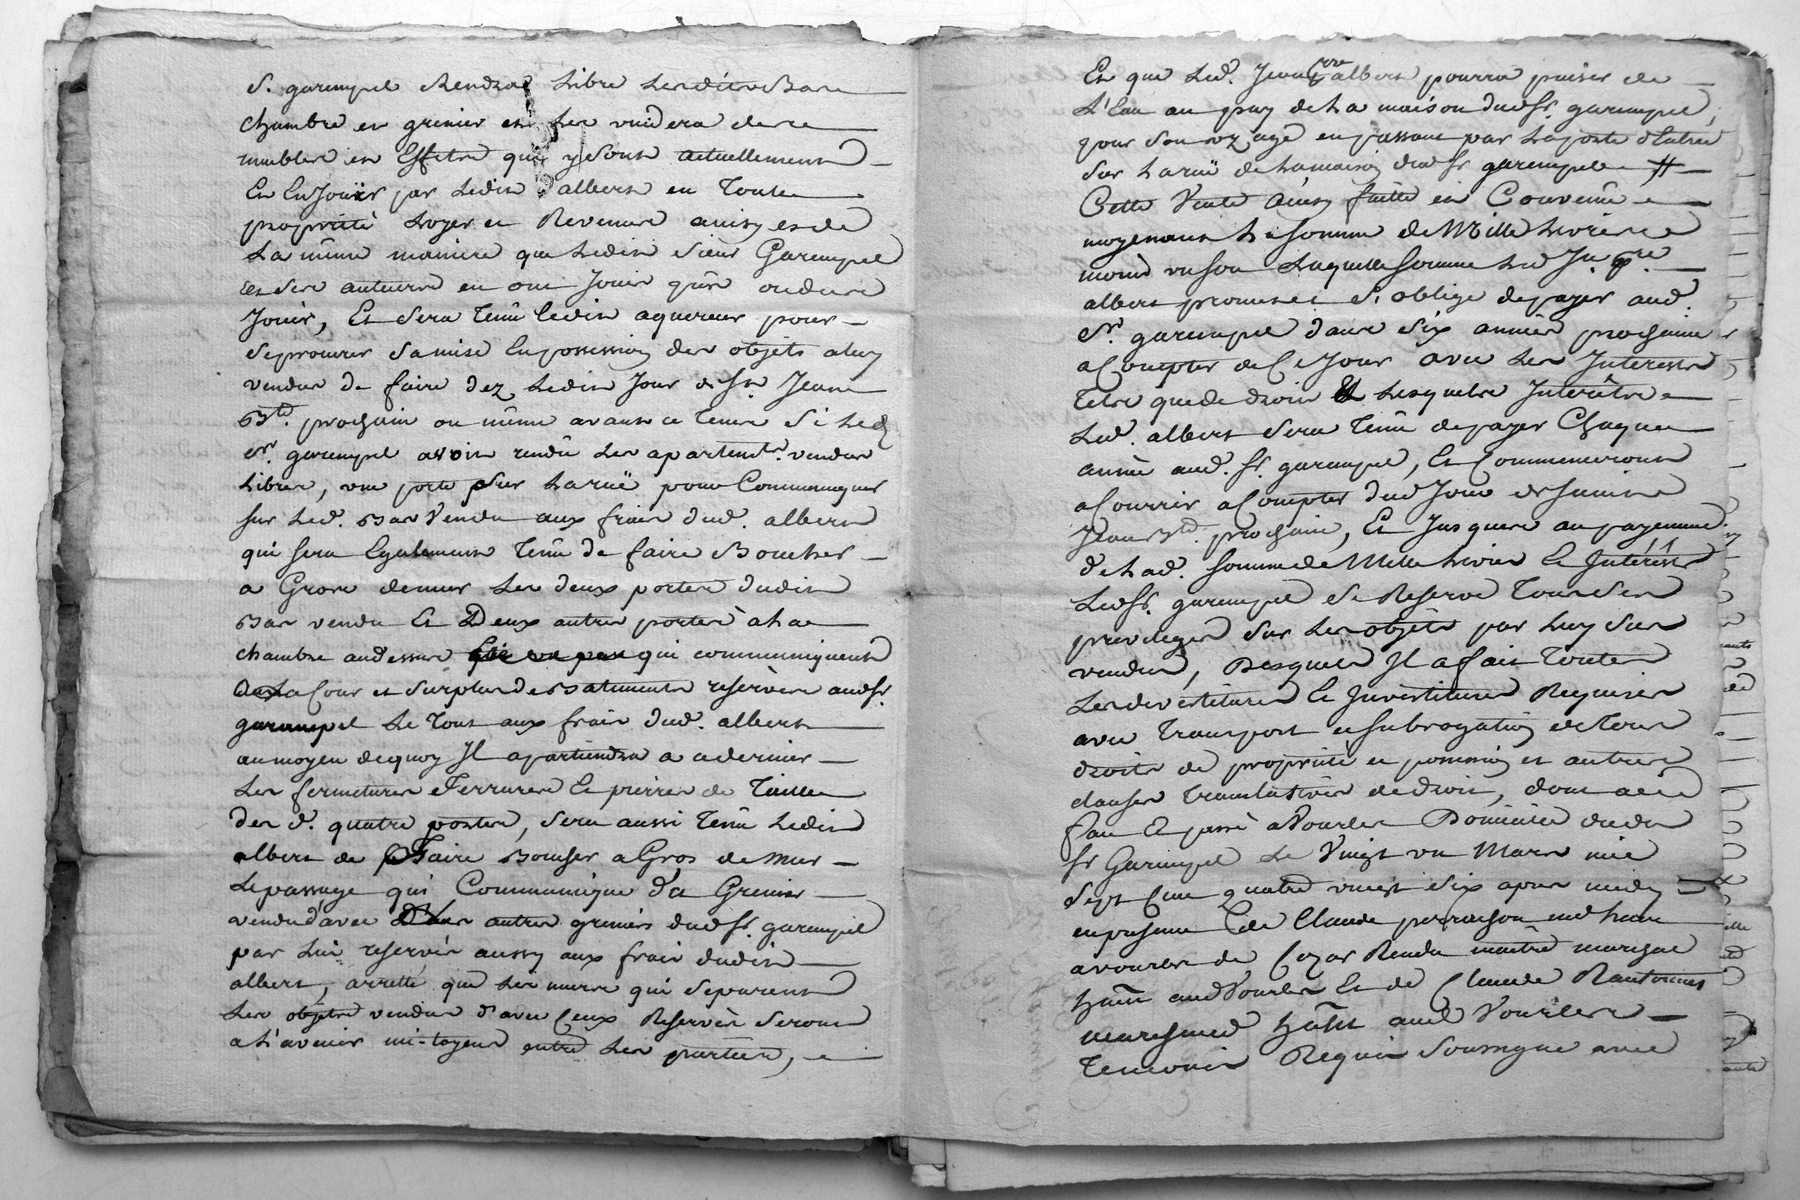 S. garempel Rendra Libre Lesdits Bas
chambre et grenier et les vuidera de ce
meubles et Effets qui y sont actuellement
Et En Jouir par Ledit albert en Toute
propriété Loyer et Revenus ainsy et de
La même maniere que Ledit sieur Garempel
et ses auteurs en ont Joui qûs ou dus
Jouir, Et sera tenû Ledit aquereur pour
se procurer sa mise En possession des objets a luy
vendus de faire dez Ledit Jour de St. Jean
Bte. prochain ou même avant ce terme Si Led.
Sr. garempel avoit rendû Les apartemts. vendus
Libres, une porte sur La ruë pour Communiquer
sur Led. Bas Vendu aux frais dud. albert
qui sera Egalement tenû de faire Boucher
a Gros de mur Les deux portes dudit
Bas vendu Et Deux autres portes a La
chambre au dessus qui communiquent
a La Cour et surplus de Batiments reservés audSr.
garempel Le Tout aux frais dud. albert
au moyen de quoy Il apartiendra a ce dernier
Les fermetures ferrures Et pierres de Taille
des d. quatre portes, sera aussi tenû Ledit
albert de faire Boucher a Gros de mur
Le passage qui Communique du Grenier
vendu d'avec Les autres greniers dudSr. garempel
par lui reservés aussy aux frais dudit
albert, arretté que Les murs qui separent
Les objets vendus d'avec Ceux Reservés seront
a L'avenir mi-toyens entre Les parties,
Et que Led. Jean pre albert pourra puiser de
L'Eau au puy de La maison dudSr. garempel,
pour son uzage en passant par La porte d'Entrée
sur La ruë de La maison dudSr. garempel #
Cette Vente ainsy faitte et Convenüe
moyenant La somme de Mille Livres
moins un sou Laquelle somme Led Jn. pre.
albert promet et S'oblige de payer aud.
Sr. garempel dans six années prochaines
a Compter de Ce Jour avec Les Interests
tels que de droit Lesquels Interêts
Led. albert sera tenû de payer Chaque
année aud. Sr. garempel, Et Commenceront
a Courrir a Compter dud Jour de saint
Jean Bte. prochain, Et Jusques au payement
de Lad. somme de Mille Livres Et Intérêts
LedSr. garempel se Reserve tous ses
privileges sur Les objets par Luy sus
vendus, Desquels Il a fait toutes
Les devestitures Et Investitures Requises
avec transport et subrogation de tous
droits de propriété et possession et autres
clauses translatives de droit, dont acte
fait Et passé a Vourles Domicile dudit
Sr Garempel Le Vingt un Mars mil
sept Cent quatre vingt six apres midy
en presence de Claude perrachon md
a vourles de Cezar Rendu maître marechal
Hâbt aud Vourles Et de Claude
marchand hâbt aud Vourles
temoins Requis soussigné avec